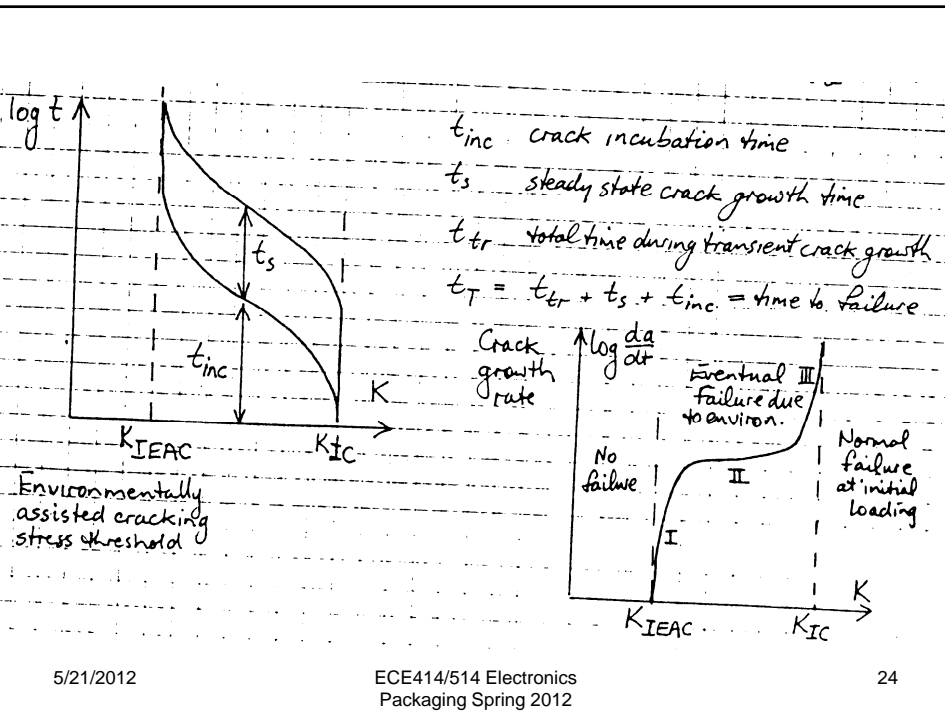 log t
t_s
t_inc
K
K_IEAC
K_IC
Environmentally
assisted cracking
stress threshold
t_inc crack incubation time
t_s steady state crack growth time
t_tr total time during transient crack growth
t_T = t_tr + t_s + t_inc = time to failure
Crack
growth
rate
log da/dt
Eventual III
failure due
to environ.
No
failure
II
I
Normal
failure
at initial
loading
K
K_IEAC
K_IC
5/21/2012
ECE414/514 Electronics
Packaging Spring 2012
24